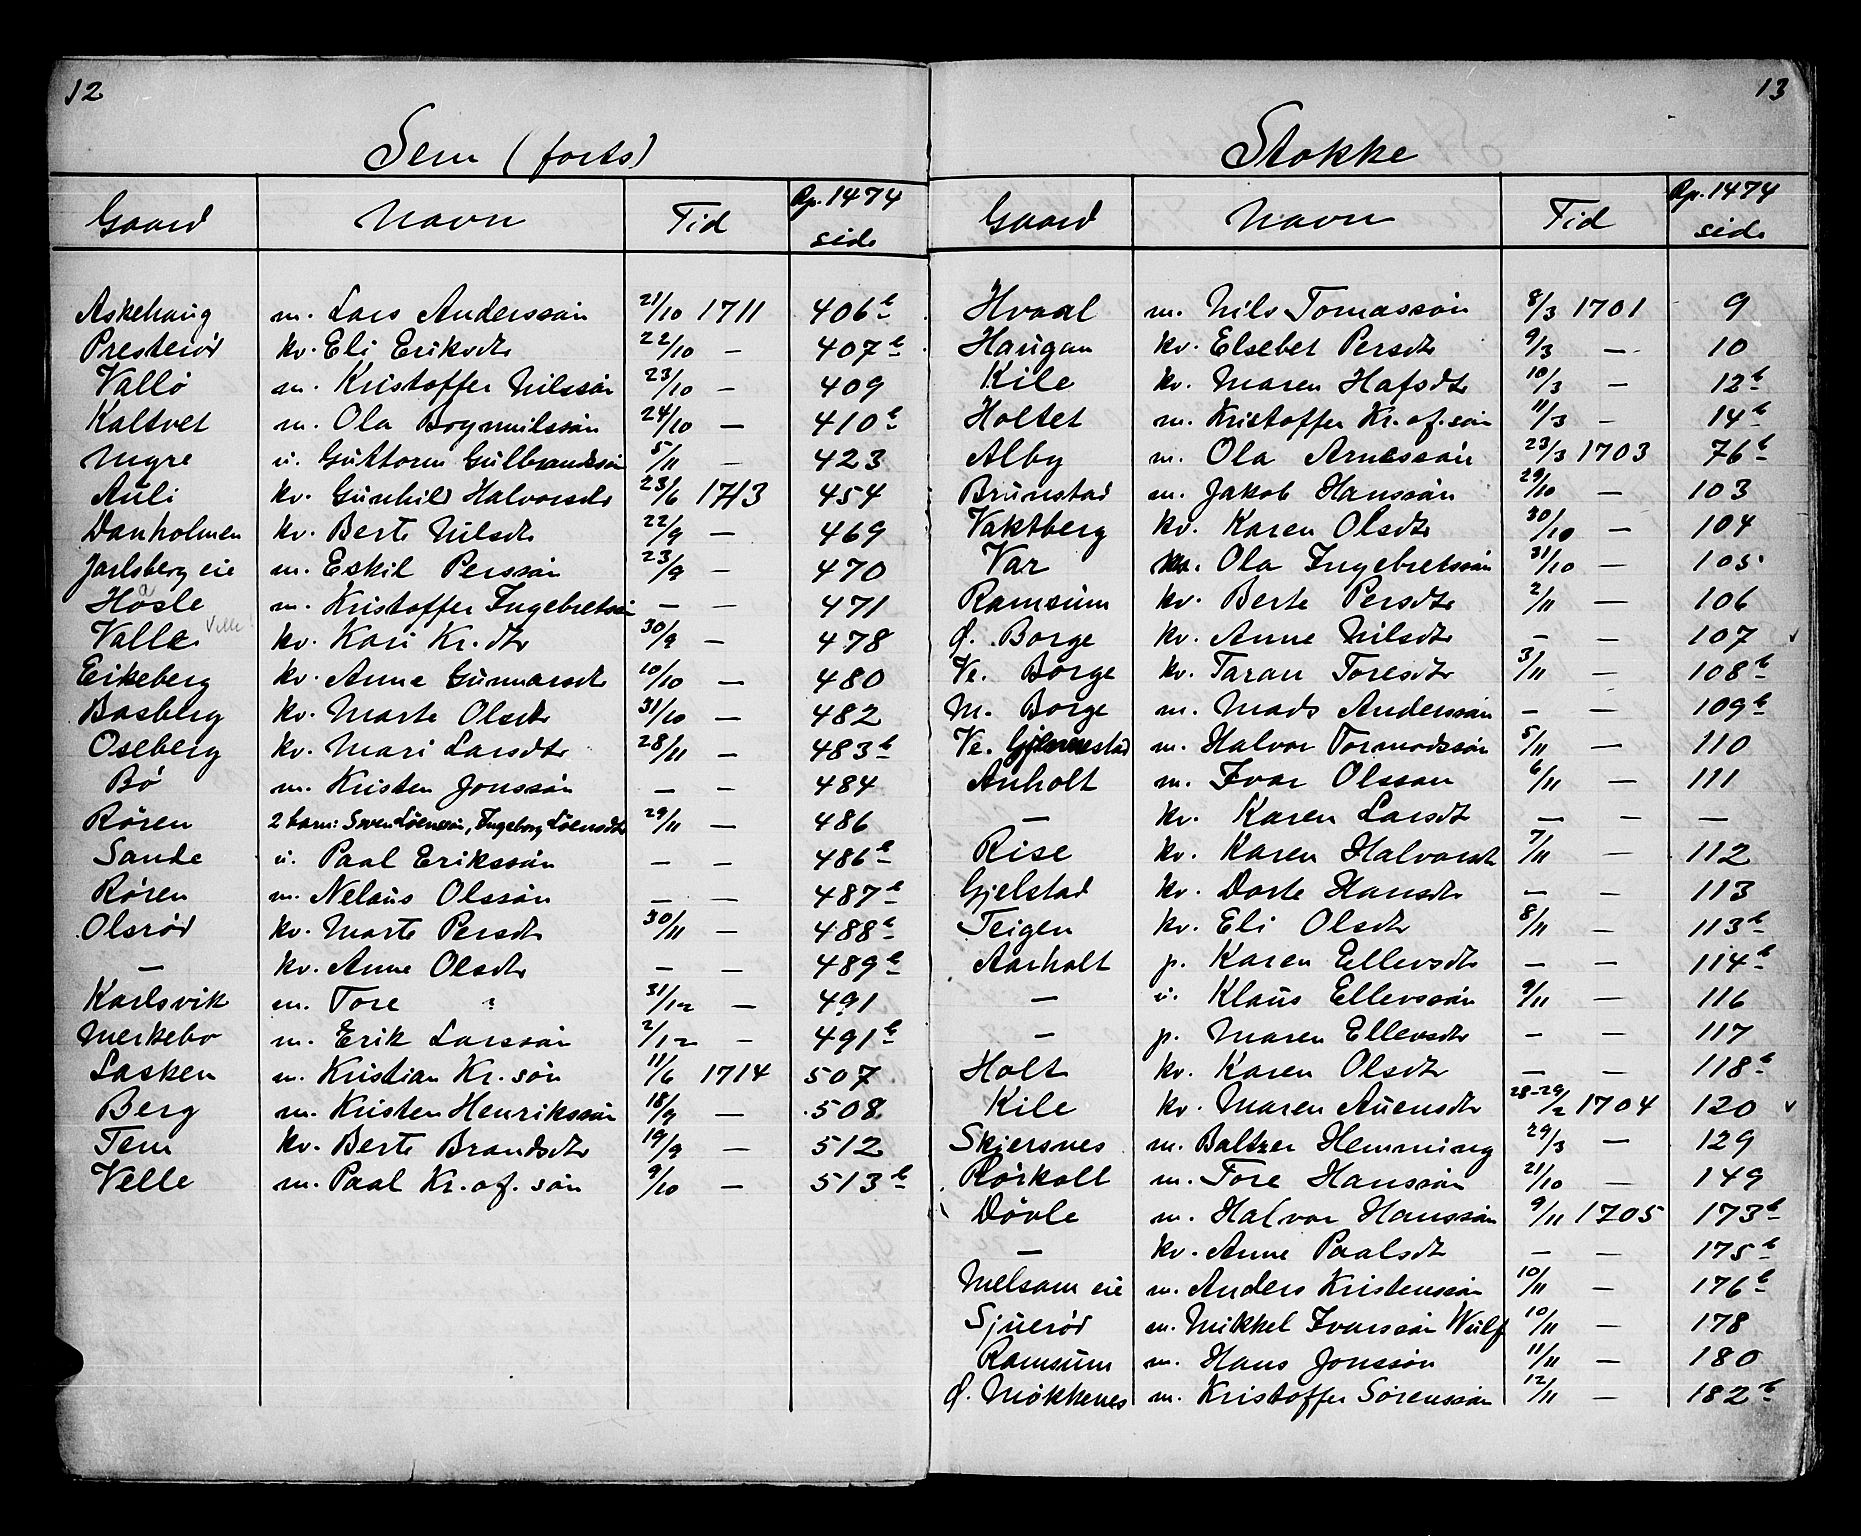 12
Sem (forts)
Gaard Navn Tid Rp. 1474 side
Askehaug m. Lars Anderssön 21/10 1711 406 b
Presterød kv. Eli Eriksdtr 22/10 — 407 b
Vallö m. Kristoffer Nilssön 23/10 — 409
Kaltvet m. Ola Bogmnilssön 24/10 — 410 b
Myre u. Guttorm Gulbrandssön 5/11 — 423
Auli kv. Gunhild Halvorsdtr 23/6 1713 454
Danholmen kv. Berte Nilsdtr 22/9 — 469
Jarlsberg eie m. Eskil Perssön 23/9 — 470
Håsle m. Kristoffer Ingebretssön — — 471
Valle Velle kv. Kari Kr.dtr 30/9 — 478
Eikeberg kv. Anne Gunnarsdtr 10/10 — 480
Basberg kv. Marte Olsdtr 31/10 — 482
Oseberg kv. Mari Larsdtr 28/11 — 483 b
Bö m. Kristen Jonssön — — 484
Røren 2 barn: Sven Löenssön, Ingeborg Löensdtr 29/11 — 486
Sande u. Paal Erikssön — — 486 b
Røren m. Nelaus Olssön — — 487 b
Olsrød kv. Marte Persdtr 30/11 — 488 b
— kv. Anne Olsdtr — — 489 b
Karlsvik m. Tore ? 31/12 — 491
Merkebo m. Erik Larssön 2/12 — 491 b
Lasken m. Kristian Kr.sön 11/6 1714 507
Berg m. Kristen Henrikssön 18/9 — 508
Tem kv. Berte Brandsdtr 19/9 — 512
Velle m. Paal Kr.of.sön 9/10 — 513 b
13
Stokke
Gaard Navn Tid Rp. 1474 side
Hvaal m. Nils Tomassön 8/3 1701 9
Haugan kv. Elsebet Persdtr 9/3 — 10
Kile kv. Maren Hafsdtr 10/3 — 12 b
Holtet m. Kristoffer Kr.of.sön 11/3 — 14 b
Alby m. Ola Arnessön 23/3 1703 76 b
Brunstad m. Jakob Hanssön 29/10 — 103
Vaktberg kv. Karen Olsdtr 30/10 — 104
Var m. Ola Ingebretssön 31/10 — 105
Ramsum kv. Berte Persdtr 2/11 — 106
Ø. Borge kv. Anne Nilsdtr — — 107 v
Ve. Borge kv. Taran Toresdtr 3/11 — 108 b
M. Borge m. Mads Anderssön — — 109 b
Ve. Gjennestad m. Halvor Tormodssön 5/11 — 110
Anholt m. Ivar Olsson 6/11 — 111
— kv. Karen Larsdtr — — —
Rise kv. Karen Halvorsdtr 7/11 — 112
Gjelstad kv. Dorte Hansdtr — — 113
Teigen kv. Eli Olsdtr 8/11 — 113 b
Aarholt p. Karen Ellevsdtr — — 114 b
— u. Klaus Ellevssön 9/11 — 116
— p. Maren Ellevsdtr — — 117
Holt kv. Karen Olsdtr — — 118 b
Kile kv. Maren Auensdtr 28-29/2 1704 120 v
Skjersnes m. Baltzer Hemming 29/3 — 129
Rörkoll m. Tore Hanssön 21/10 — 149
Dövle m. Halvor Hanssön 9/11 1705 173 b
— kv. Anne Paalsdtr — — 175 b
Melsom eie m. Anders Kristenssön 10/11 — 176 b
Sjuerød m. Mikkel Ivarssön Wulf 10/11 — 178
Ramsum m. Hans Jonssön 11/11 — 180
Ø. Mökkenes m. Kristoffer Sörenssön 12/11 — 182 b